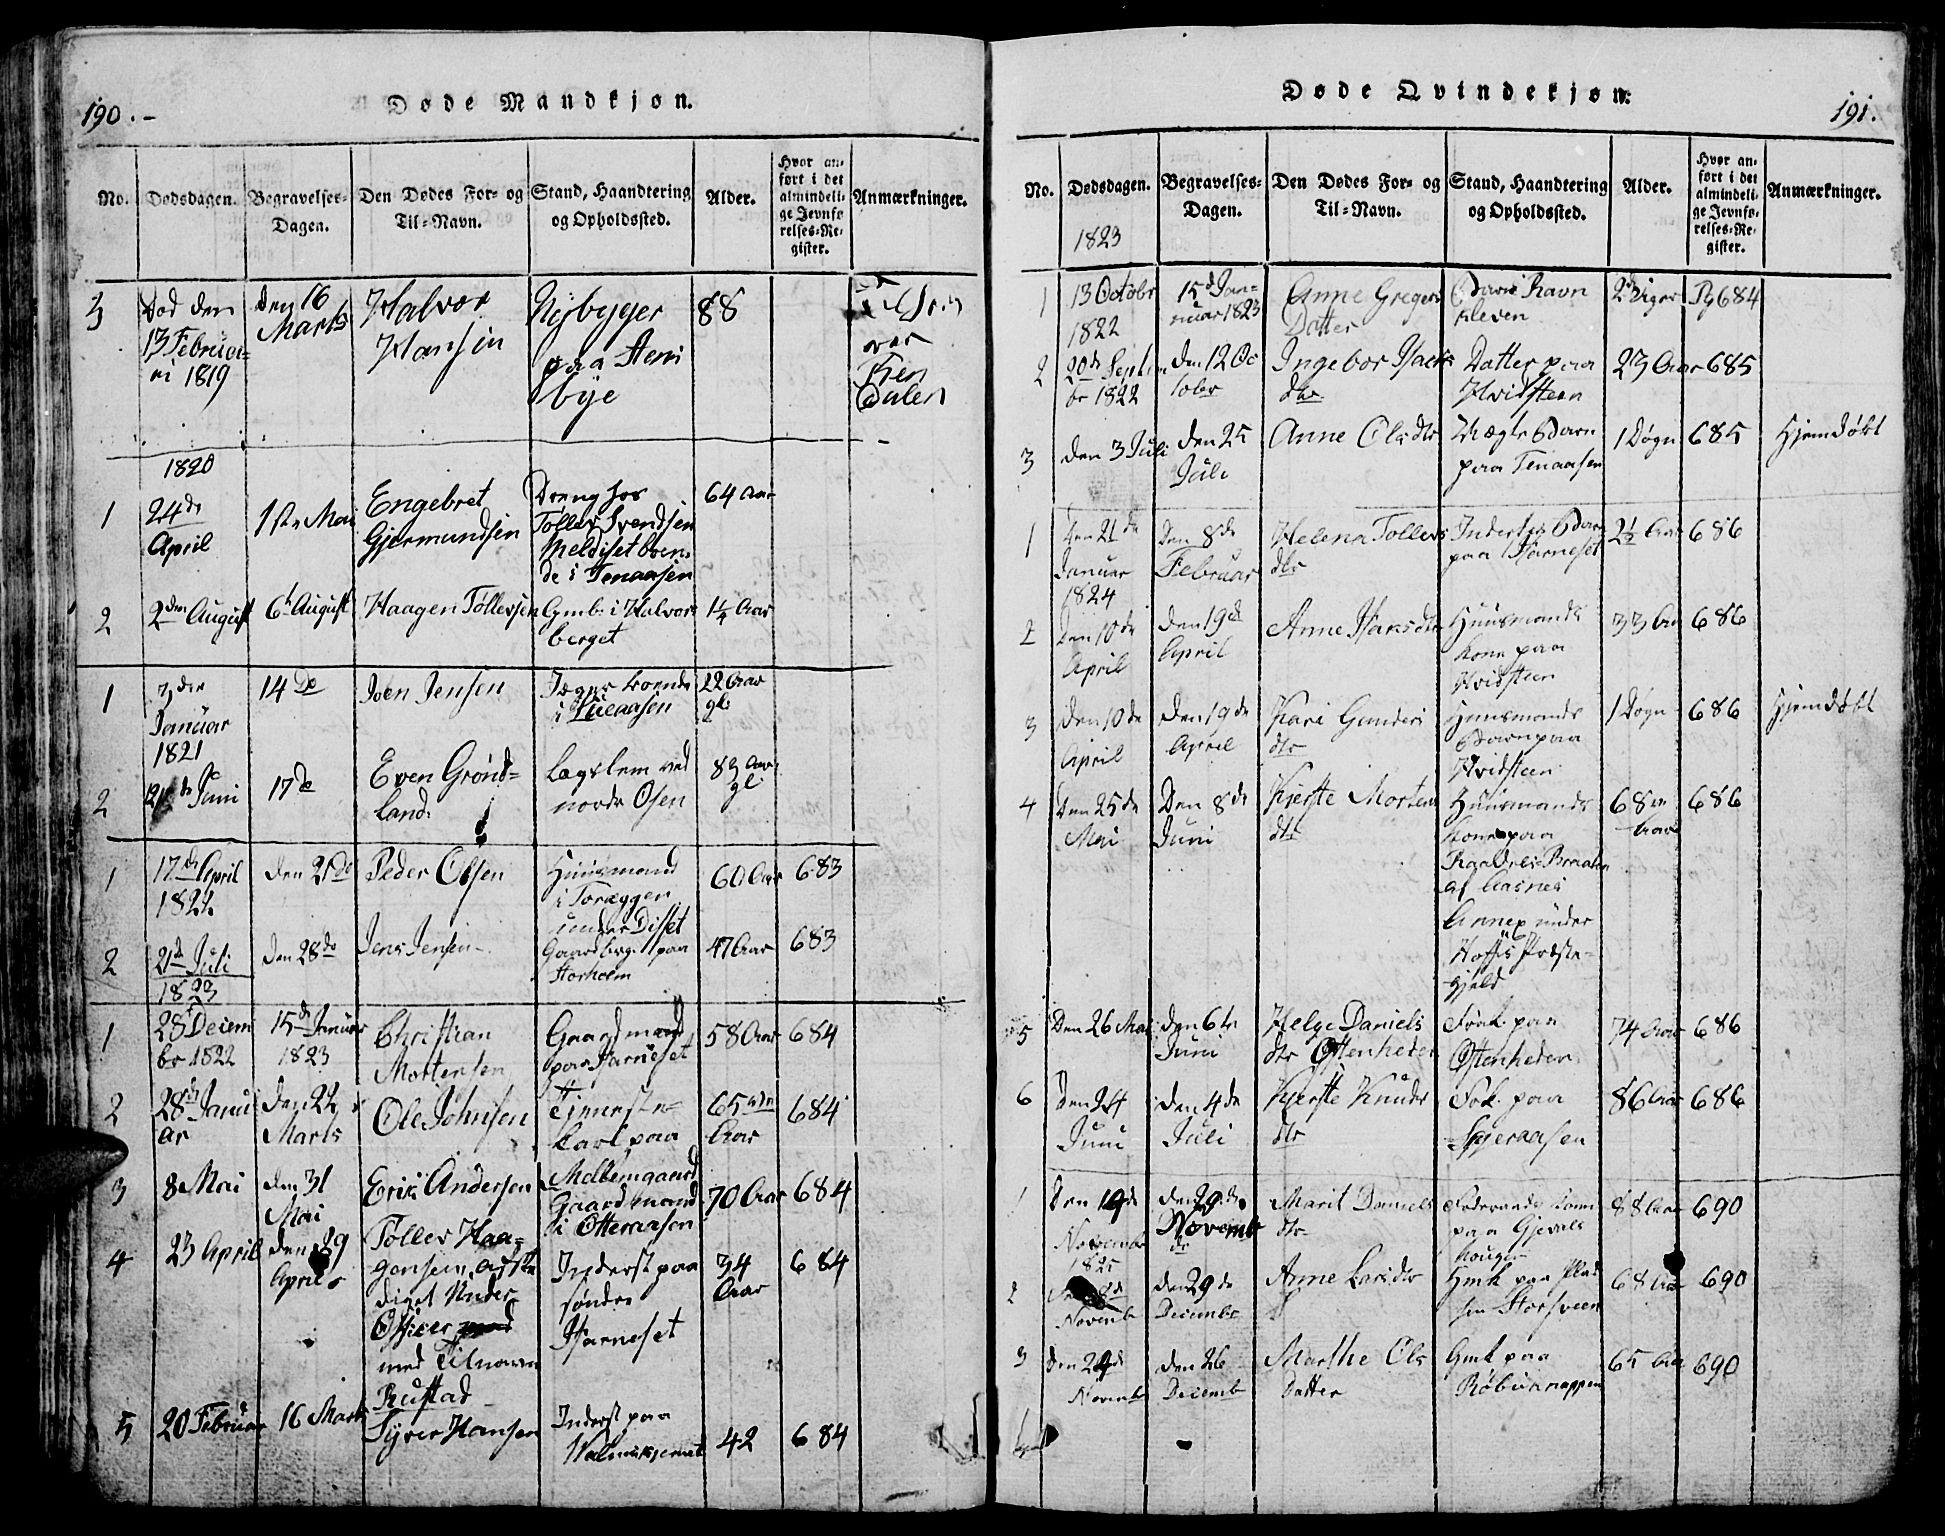 190.-
Døde Mandkjøn.
No.
Dødsdagen.
Begravelses-
Dagen.
Den Dødes For- og
Til-Navn.
Stand, Haandtering
og Opholdssted.
Alder.
Hvor an-
ført i det
almindeli-
ge Jevnfø
relses-Re-
gister.
Anmærkninger.
3
Død den
13 Februa-
ri 1819
den 16
Marts
Halvor
Hansen
Nybygger
paa
bye
88
1820
1
24de
April
1ste Mai
Engebret
Gjermundsen
Dreng hos
Tollev Svendsen
Meldiset boen-
de i Tenaasen
64 Aar
2
2den August
6te August
Haagen Tollevsen
i Halvors
berget
1¼ Aar
1
3die
Januar
1821
14de
Joen Jensen
Jæger boende
i Lieaasen
22 Aar
gl.
2
Juni
17de
Even Grønd-
land.
Lægslem ved
nordre Osen
83 Aar
gl
1
17de April
1822
den 21de
Peder Olsen
Huusmand
i Toræggen
under Disset
60 Aar
683
2
21de Juli
den 28de
Jens Jensen
paa
Storholm
47 Aar
683
1823
1
28de Decem
br 1822
15de Januar
1823
Christian
Mortensen
Gaardmand
paa Harneset
58 Aar
684
2
28de Janu
ar
den 22
Marts
Ole Johnsen
Tjeneste-
karl paa
65
Aar
684
3
8 Mai
den 31
Mai
Erik Andersen
Gaardmand
i Otteraasen
70 Aar
684
4
23 April
den 29
April
Tollev Haa-
gensen, afske
diget Under-
Officer
med Tilnavn
Rustad
Inderst paa
søndre
Harneset
34
Aar
684
5
20 Februar
16 Marts
Syver Hansen
Inderst paa
42
684
Døde Qvindekjøn.
191.
No.
Dødsdagen.
1823
Begravelses-
Dagen.
Den Dødes For- og
Til-Navn.
Stand, Haandtering
og Opholdssted.
Alder.
Hvor an-
ført i det
almindeli-
ge Jevnfø-
relses-Re-
gister.
Anmærkninger.
1
13 Octobr
1822
15de Jan-
nuar 1823
Anne Gregers
Datter
Barn i Ravn
kleven
2
Pg 684
2
20de Septem
br 1822
den 12 Oc
tober
Ingebor Isachs
dtr
Datter paa
Hvidsteen
23 Aar
685
3
den 3 Juli
den 25
Juli
Anne Olsdtr
Uægte Barn
paa Tenaasen
1 Døgn
685
Hjemdøbt
1
den 21de
Januar
1824
Den 8de
Februar
Helena Tollevs
dtr
Inderstes Barn
paa Harneset
2½ Aar
686
2
Den 10de
April
den 19de
April
Anne Isaksdtr
Huusmands
kone paa
Hvidsteen
33 Aar
686
3
den 10de
April
den 19de
April
Kari Gunders
dtr
Huusmands
Barn paa
Hvidsteen
1 Døgn
686
Hjemdøbt
4
Den 25de
Mai
Den 8de
Juni
Kjerste Mortens
dtr
Huusmands
kone paa
Braaten
af Aasnes
Annex under
Hoffs Præste-
gjeld
68
Aar
686
5
Den 26 Mai
den 6te
Juni
Helge Daniels
dtr Ottenheden
paa
Ottenheden
74 Aar
686
6
Den 24
Juni
den 4de
Juli
Kjerste Knuds
dtr
paa
86 Aar
686
1
Den 19de
Novembr
1825
den 29de
Novemb
Marit Daniels
dtr
paa Gjevals
hougen
88 Aar
690
2
Novemb
den 29de
Decembr
Anne Larsdtr
paa Plad
sen Storsveen
68 Aar
690
3
Den 29de
Novemb
den 26
Decemb
Marthe Ols
Datter
Gmk paa
65 Aar
690
4